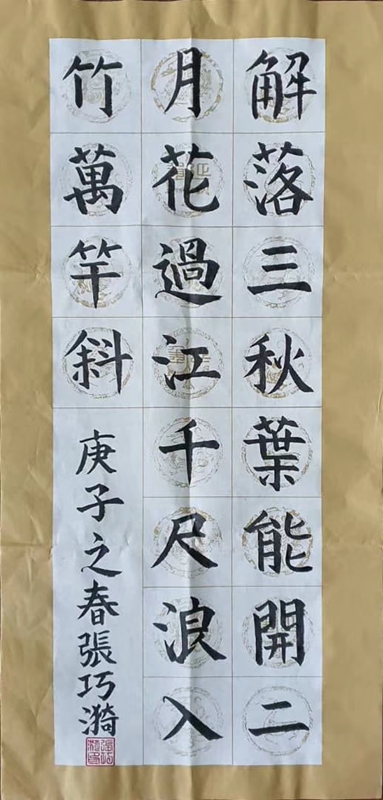 解落三秋葉能開二
月花過江千尺浪入
竹萬竿斜
庚子之春張巧漪